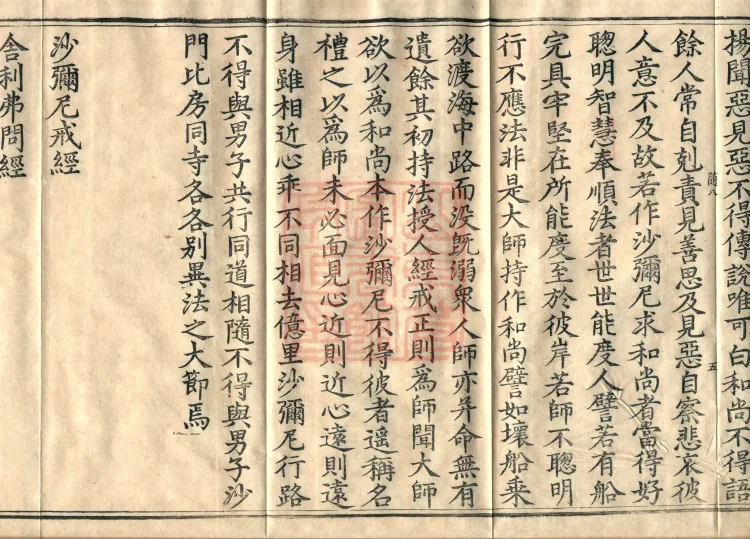 揚聞惡見惡不得傳說唯可白和尚不得語
餘人常自剋責見善思及見惡自察悲哀彼
人意不及故若作沙彌尼求和尚者當得好
聰明智慧奉順法者世世能度人譬若有船
完具牢堅在所能度至於彼岸若師不聰明
行不應法非是大師持作和尚譬如壞船乗
欲渡海中路而没旣溺衆人師亦并命無有
遺餘其初持法授人經戒正則爲師聞大師
欲以爲和尚本作沙彌尼不得彼者遥稱名
禮之以爲師未必面見心近則近心遠則遠
身雖相近心乖不同相去億里沙彌尼行路
不得與男子共行同道相隨不得與男子沙
門比房同寺各各别異法之大節焉
沙彌尼戒經
舎利弗問經
五